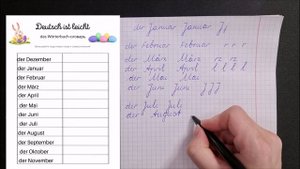 Deutsch ist leicht
der Dezember
der Januar
der Februar
der März
der April
der Mai
der Juni
der Juli
der August
der September
der Oktober
der November
der Januar Januar J
der Februar Februar r r r
der März März rz rz
der April April l l l l
der Mai Mai
der Juni Juni J J J
der Juli Juli
der August